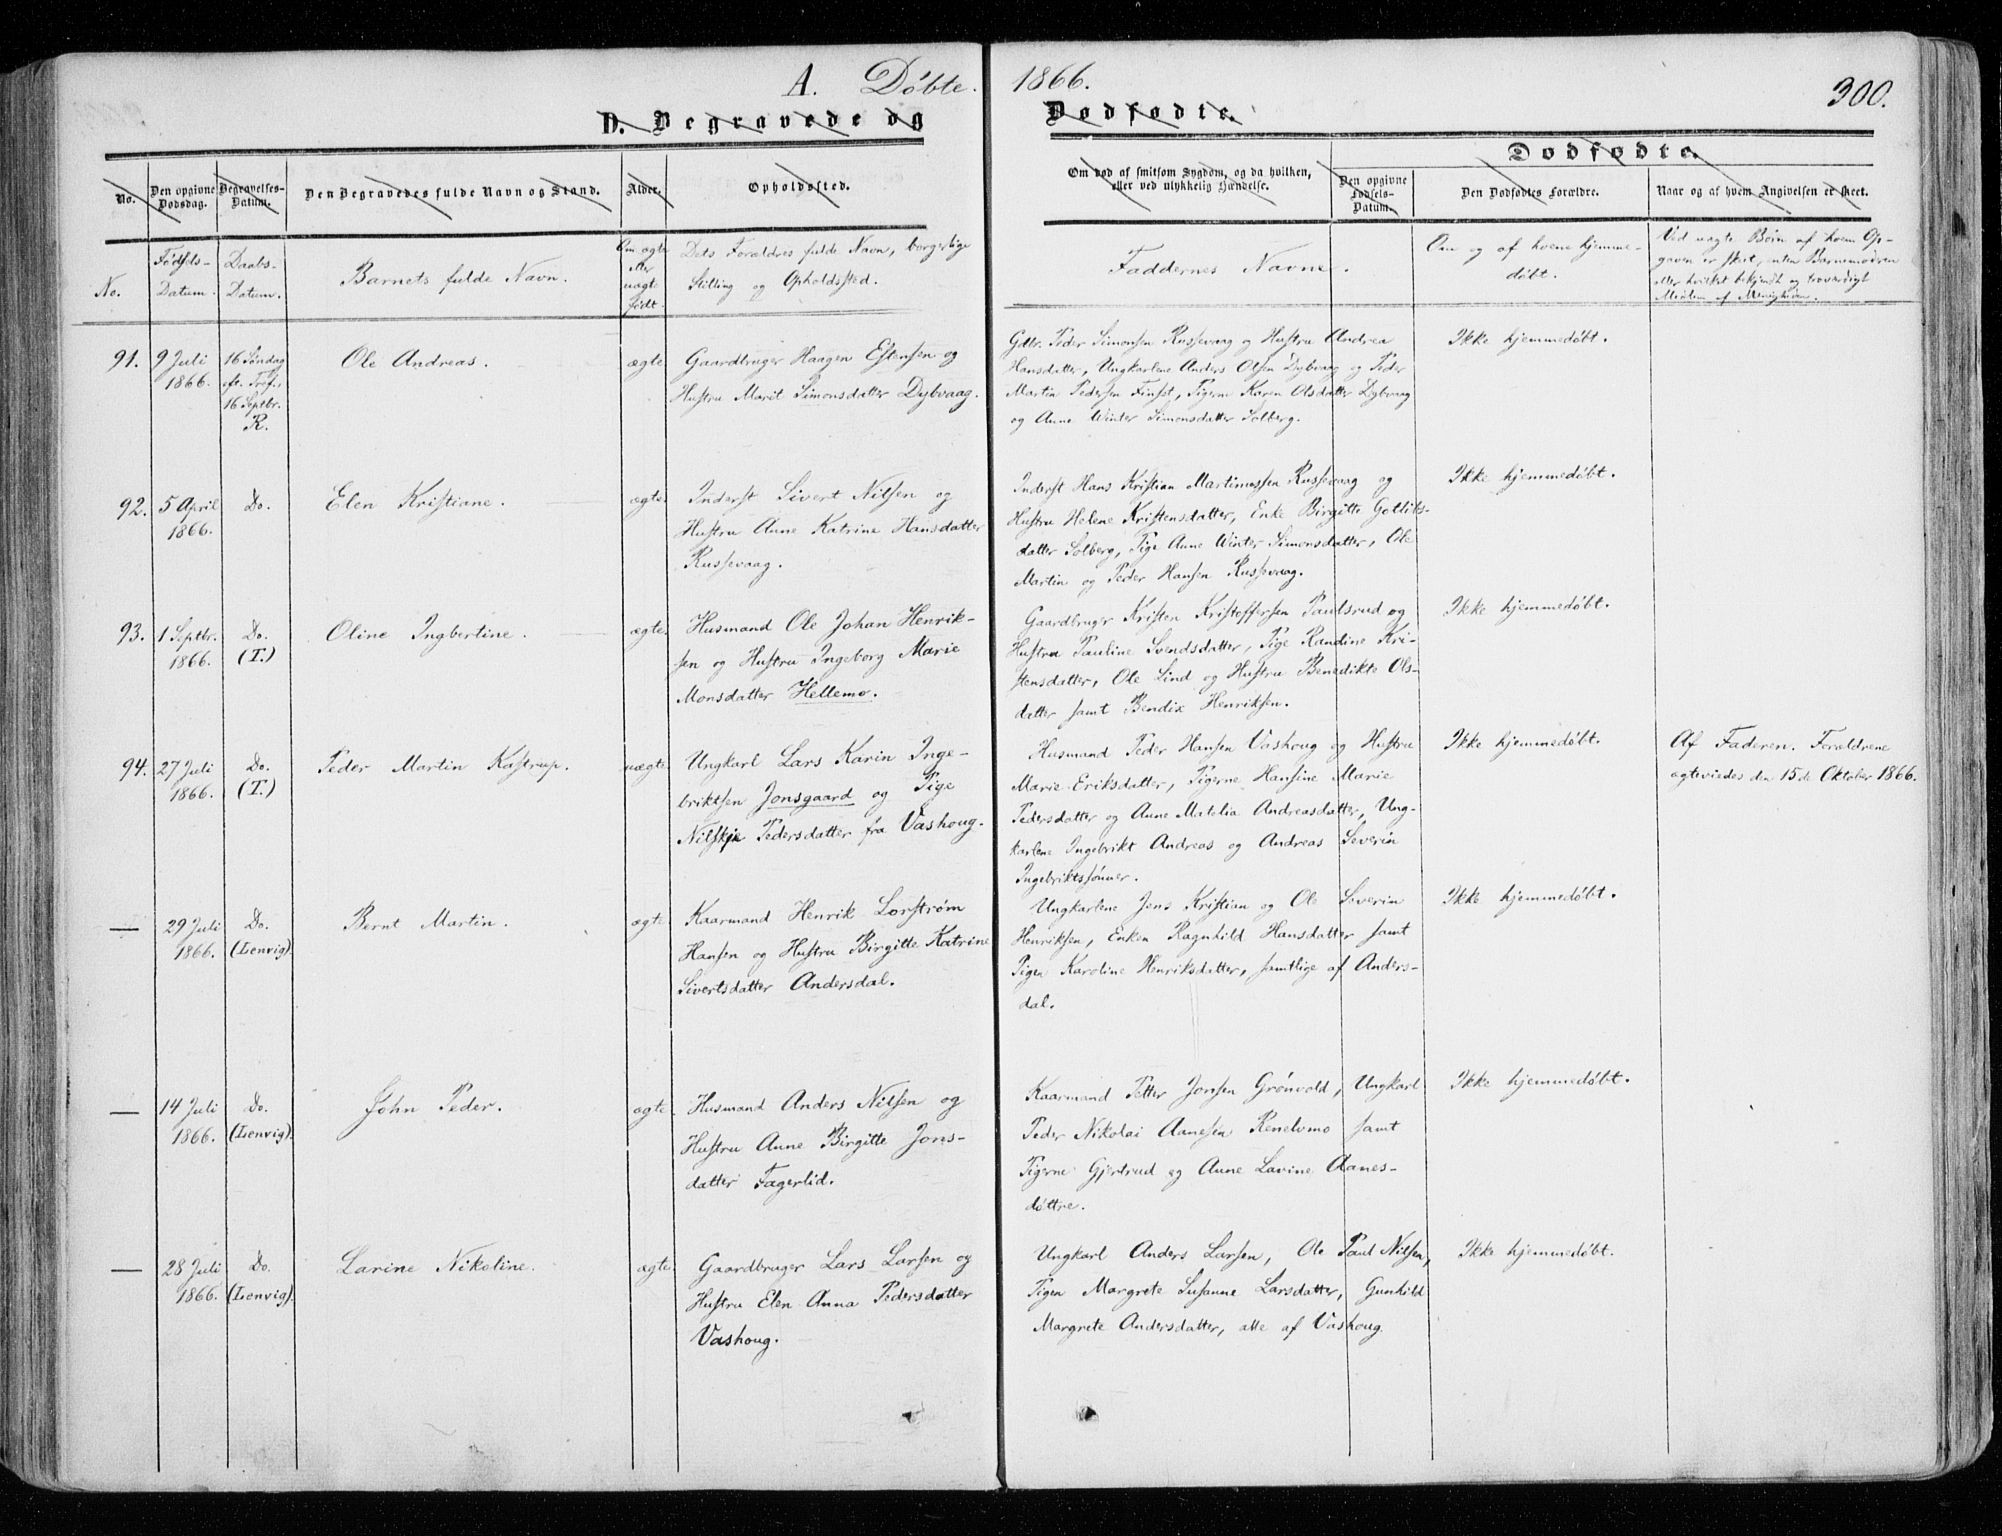 A. Døbte. 1866. 300.
D. Begravede og Dødfødte.
No.
Den opgivne Dødsdag.
Begravelses-Datum.
Den Begravedes fulde Navn og Stand.
Alder.
Opholdssted.
Om død af smitsom Sygdom, og da hvilken, eller ved ulykkelig Hændelse.
Dødfødte.
Den opgivne Fødsels-Datum.
Den Dødfødtes Forældre.
Naar og af hvem Angivelsen er skeet.
No.
Fødsels-Datum.
Daabs-Datum.
Barnets fulde Navn.
Om ægte eller uægte født.
Dets Forældres fulde Navn, borgerlige
Stilling og Opholdssted.
Faddernes Navne.
Om og af hvem hjemme-
døbt.
Ved uægte Børn af hvem Op-
gaven er skeet, enten Barnemoderen
eller hvilket bekjendt og troværdigt
Medlem af Menigheden.
91.
9 Juli
1866.
16 Søndag
eft. Tref.,
16 Septbr.
R.
Ole Andreas.
ægte
Gaardbruger Haagen Estensen og
Hustru Marit Simonsdatter Dybvaag.
Gdbr. Peder Simonsen Russevaag og Hustru Andrea
Hansdatter, Ungkarlene Anders Olsen Dybvaag og Peder
Martin Pedersen Finset, Pigerne Karen Olsdatter Dybvaag
og Anne Winter Simonsdatter Solberg.
Ikke hjemmedøbt.
92.
5 April
1866.
Do.
Elen Kristiane.
ægte.
Inderst Sivert Nilsen og
Hustru Anne Katrine Hansdatter
Russevaag.
Inderst Hans Kristian Martinussen Russevaag og
Hustru Helene Kristensdatter, Enke Birgitte Gotliks-
datter Solberg, Pige Anne Winter Simonsdatter, Ole
Martin og Peder Hansen Russevaag.
Ikke hjemmedøbt.
93.
1 Septbr.
1866.
Do.
(T.)
Oline Ingbertine.
ægte.
Husmand Ole Johan Henrik-
sen og Hustru Ingeborg Marie
Monsdatter Hellemo.
Gaardbruger Kristen Kristoffersen Paulsrud og
Hustru Pauline Svendsdatter, Pige Randine Kri-
stensdatter, Ole Lind og Hustru Benedikte Ols-
datter samt Bendix Henriksen.
Ikke hjemmedøbt.
94.
27 Juli
1866.
Do.
(T.)
Peder Martin Kastrup.
uægte.
Ungkarl Lars Karin Inge-
briktsen Jonsgaard og Pige
Nilskje Pedersdatter fra Vashoug.
Husmand Peder Hansen Vashoug og Hustru
Marie Eriksdatter, Pigerne Hansine Marie
Pedersdatter og Anne Matelia Andreasdatter, Ung-
karlene Ingebrikt Andreas og Andreas Severin
Ingebriktssønner.
Ikke hjemmedøbt.
Af Faderen. Forældrene
ægteviedes den 15de Oktober 1866.
—
29 Juli
1866.
Do.
(Lenvig).
Bernt Martin.
ægte
Kaarmand Henrik Lorstrøm
Hansen og Hustru Birgitte Katrine
Sivertsdatter Andersdal.
Ungkarlene Jens Kristian og Ole Severin
Henriksen, Enken Ragnhild Hansdatter samt
Pigen Karoline Henriksdatter, samtlige af Anders-
dal.
Ikke hjemmedøbt.
—
14 Juli
1866.
Do.
(Lenvig).
John Peder.
ægte.
Husmand Anders Nilsen og
Hustru Anne Birgitte Jons-
datter Fagerlid.
Kaarmand Petter Jonsen Grønvold, Ungkarl
Peder Nikolai Aanesen Renelvmo samt
Pigerne Gjertrud og Anne Lavine Aanes-
døttre.
Ikke hjemmedøbt.
—
28 Juli
1866.
Do.
(Lenvig).
Larine Nikoline.
ægte.
Gaardbruger Lars Larsen og
Hustru Elen Anna Pedersdatter
Vashoug.
Ungkarl Anders Larsen, Ole Paul Nilsen,
Pigen Margrete Susanne Larsdatter, Gunhild
Margrete Andersdatter, alle af Vashoug.
Ikke hjemmedøbt.